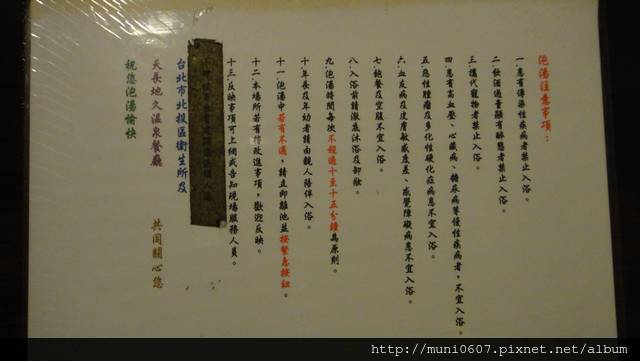 泡湯注意事項：
一.患有傳染性疾病者禁止入浴。
二.飲酒過量顯有醉態者禁止入浴。
三.攜代寵物者禁止入浴。
四.患有高血壓、心臟病、糖尿病等慢性疾病者,不宜入浴。
五.惡性腫瘤及多化性硬化症病患不宜入浴。
六.血友病及皮膚敏感度差、感覺障礙病患不宜入浴。
七.飽餐及空腹不宜入浴。
八.入浴前請澈底沐浴及卸妝。
九.泡湯時間每次不超過十至十五分鐘為原則。
十.年長及年幼者請由親人陪伴入浴。
十一.泡湯中若有不適,請立即離池並按緊急按鈕。
十二.本場所若有待改進事項,歡迎反映。
十三.反映事項可上網或告知現場服務人員。
台北市北投區衛生所及
天長地久溫泉餐廳 共同關心您
祝您泡湯愉快
http://muni0607.pixnet.net/album